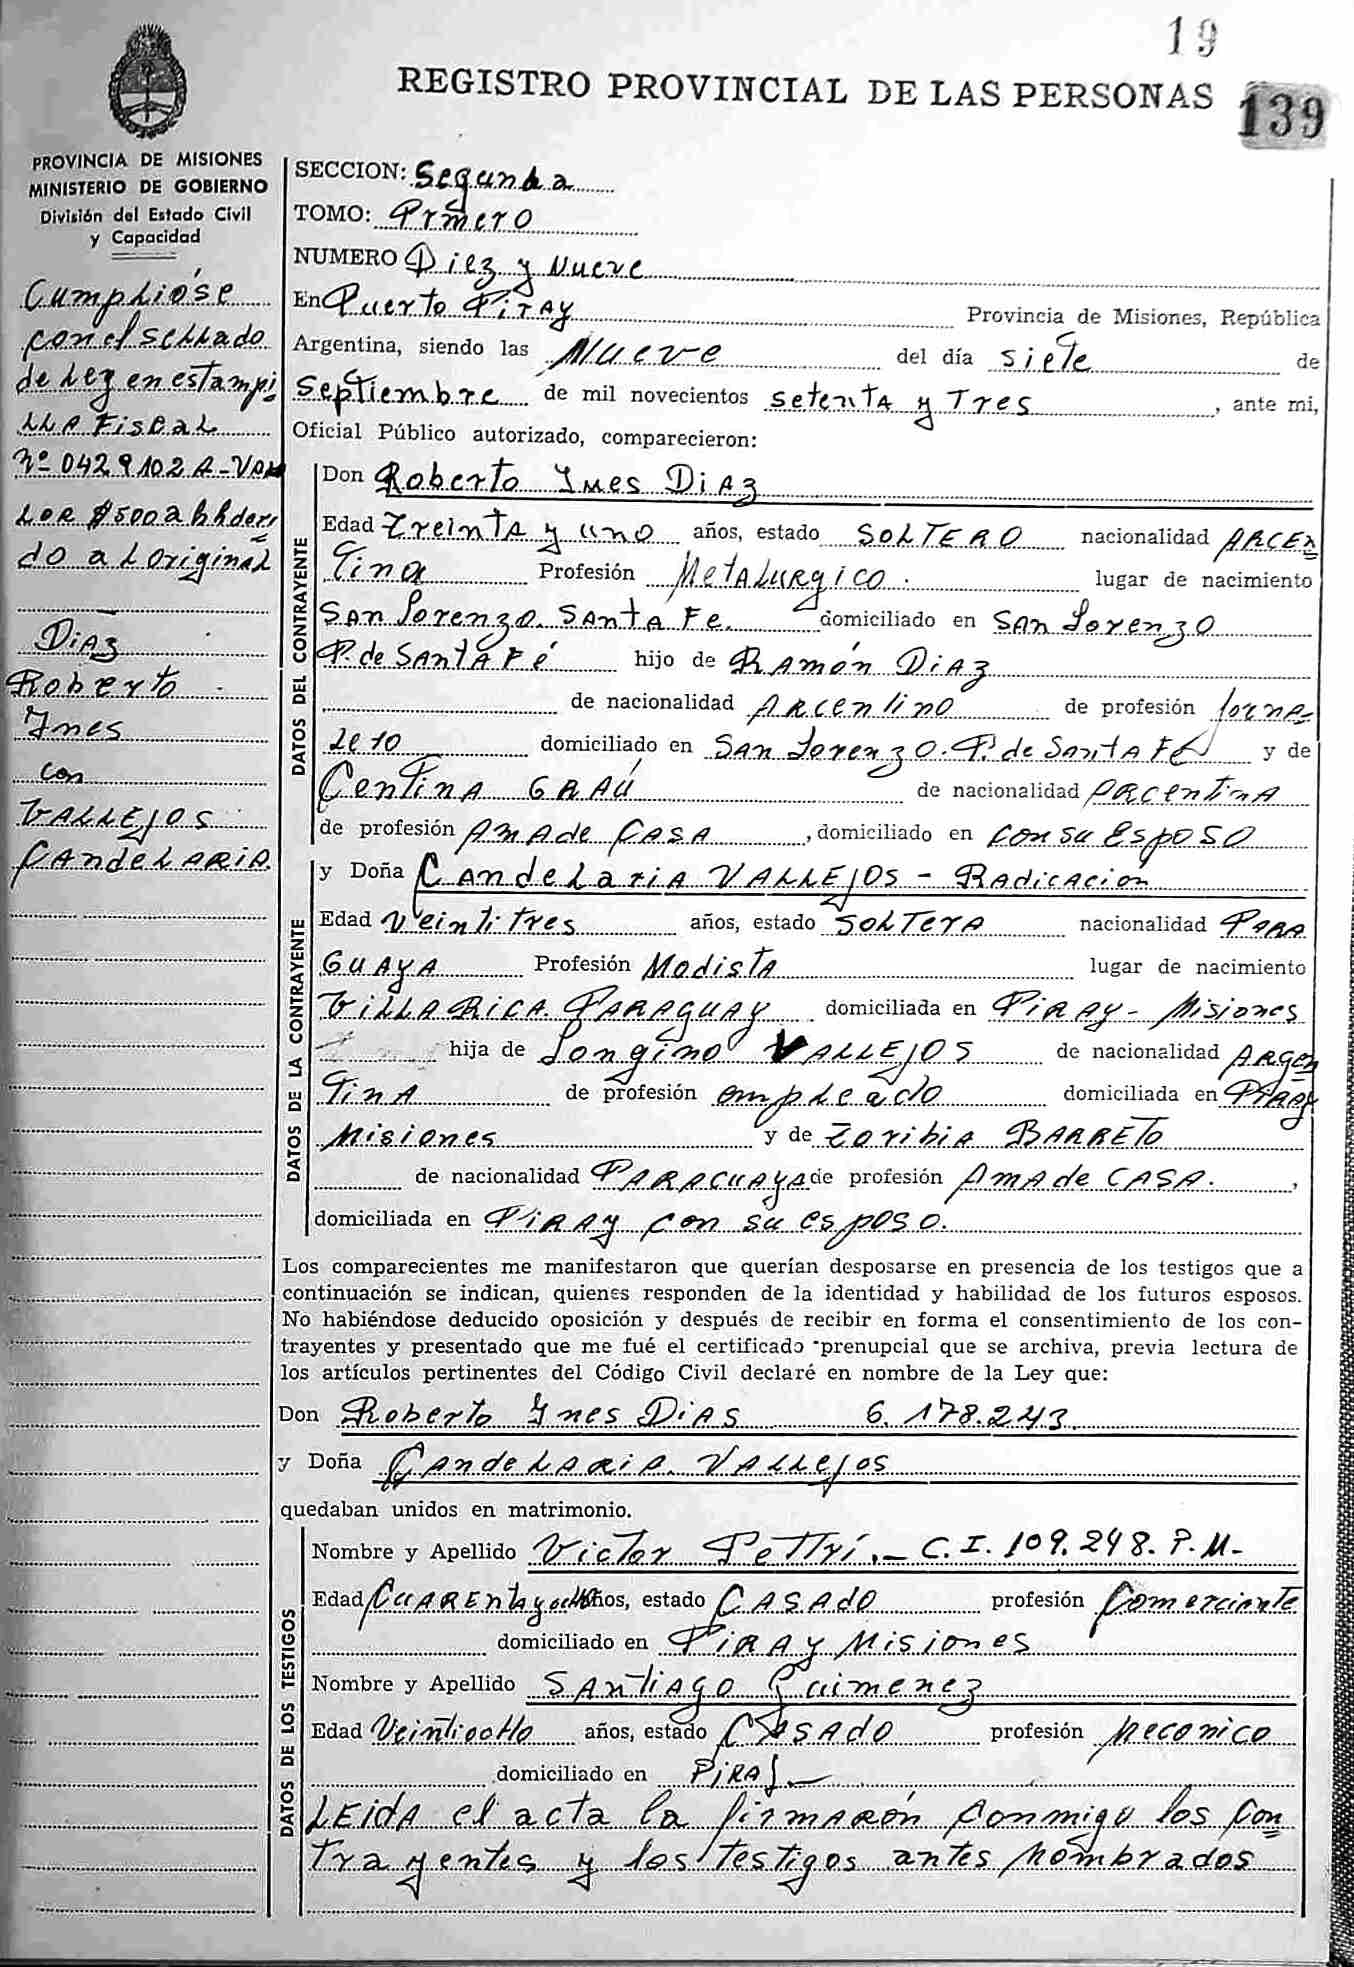 19
REGISTRO PROVINCIAL DE LAS PERSONAS
139
PROVINCIA DE MISIONES
MINISTERIO DE GOBIERNO
División del Estado Civil
y Capacidad
Cumplióse
con el sellado
de Ley en estampi
lla Fiscal
Nº 0429102 A-Va
lor $500 adheri
do al original
Diaz
Roberto
Ynes
con
VALLEJOS
CAndeLARiA
SECCION: Segunda
TOMO: Primero
NUMERO Diez y Nueve
En Puerto Piray Provincia de Misiones, República
Argentina, siendo las Nueve del día siete de
Septiembre de mil novecientos setenta y Tres, ante mi,
Oficial Público autorizado, comparecieron:
DATOS DEL CONTRAYENTE
Don Roberto Ynes Diaz
Edad Treinta y uno años, estado SOLTERO nacionalidad ARGEN
Tina Profesión Metalurgico. lugar de nacimiento
San Lorenzo. Santa Fe. domiciliado en San Lorenzo
P. de Santa Fé hijo de Ramón Diaz
de nacionalidad Argentino de profesión Jorna-
lero domiciliado en San Lorenzo. P. de Santa Fé y de
Centina GRAÚ de nacionalidad Argentina
de profesión Ama de Casa, domiciliado en con su Esposo
DATOS DE LA CONTRAYENTE
y Doña Candelaria VALLEJOS - Radicacion
Edad Veintitres años, estado Soltera nacionalidad Para
Guaya Profesión Modista lugar de nacimiento
Villa Rica Paraguay domiciliada en Piray - Misiones
hija de Longino VALLEJOS de nacionalidad Argen
Tina de profesión empleado domiciliada en Piray
Misiones y de Zoribia BARRETO
de nacionalidad Paraguaya de profesión Ama de CASA.,
domiciliada en Piray con su esposo.
Los comparecientes me manifestaron que querían desposarse en presencia de los testigos que a
continuación se indican, quienes responden de la identidad y habilidad de los futuros esposos.
No habiéndose deducido oposición y después de recibir en forma el consentimiento de los con-
trayentes y presentado que me fué el certificado prenupcial que se archiva, previa lectura de
los artículos pertinentes del Código Civil declaré en nombre de la Ley que:
Don Roberto Ynes Dias 6.178.243.
y Doña Candelaria Vallejos
quedaban unidos en matrimonio.
DATOS DE LOS TESTIGOS
Nombre y Apellido Victor Pettri.- C.I. 109.248. P.M-
Edad Cuarenta y ocho años, estado CASADO profesión Comerciante
domiciliado en Piray Misiones
Nombre y Apellido Santiago Guimenez
Edad Veintiocho años, estado CASADO profesión Mecanico
domiciliado en Piray
LEIDA el acta la firmarón conmigo los Con
trayentes y los testigos antes Nombrados